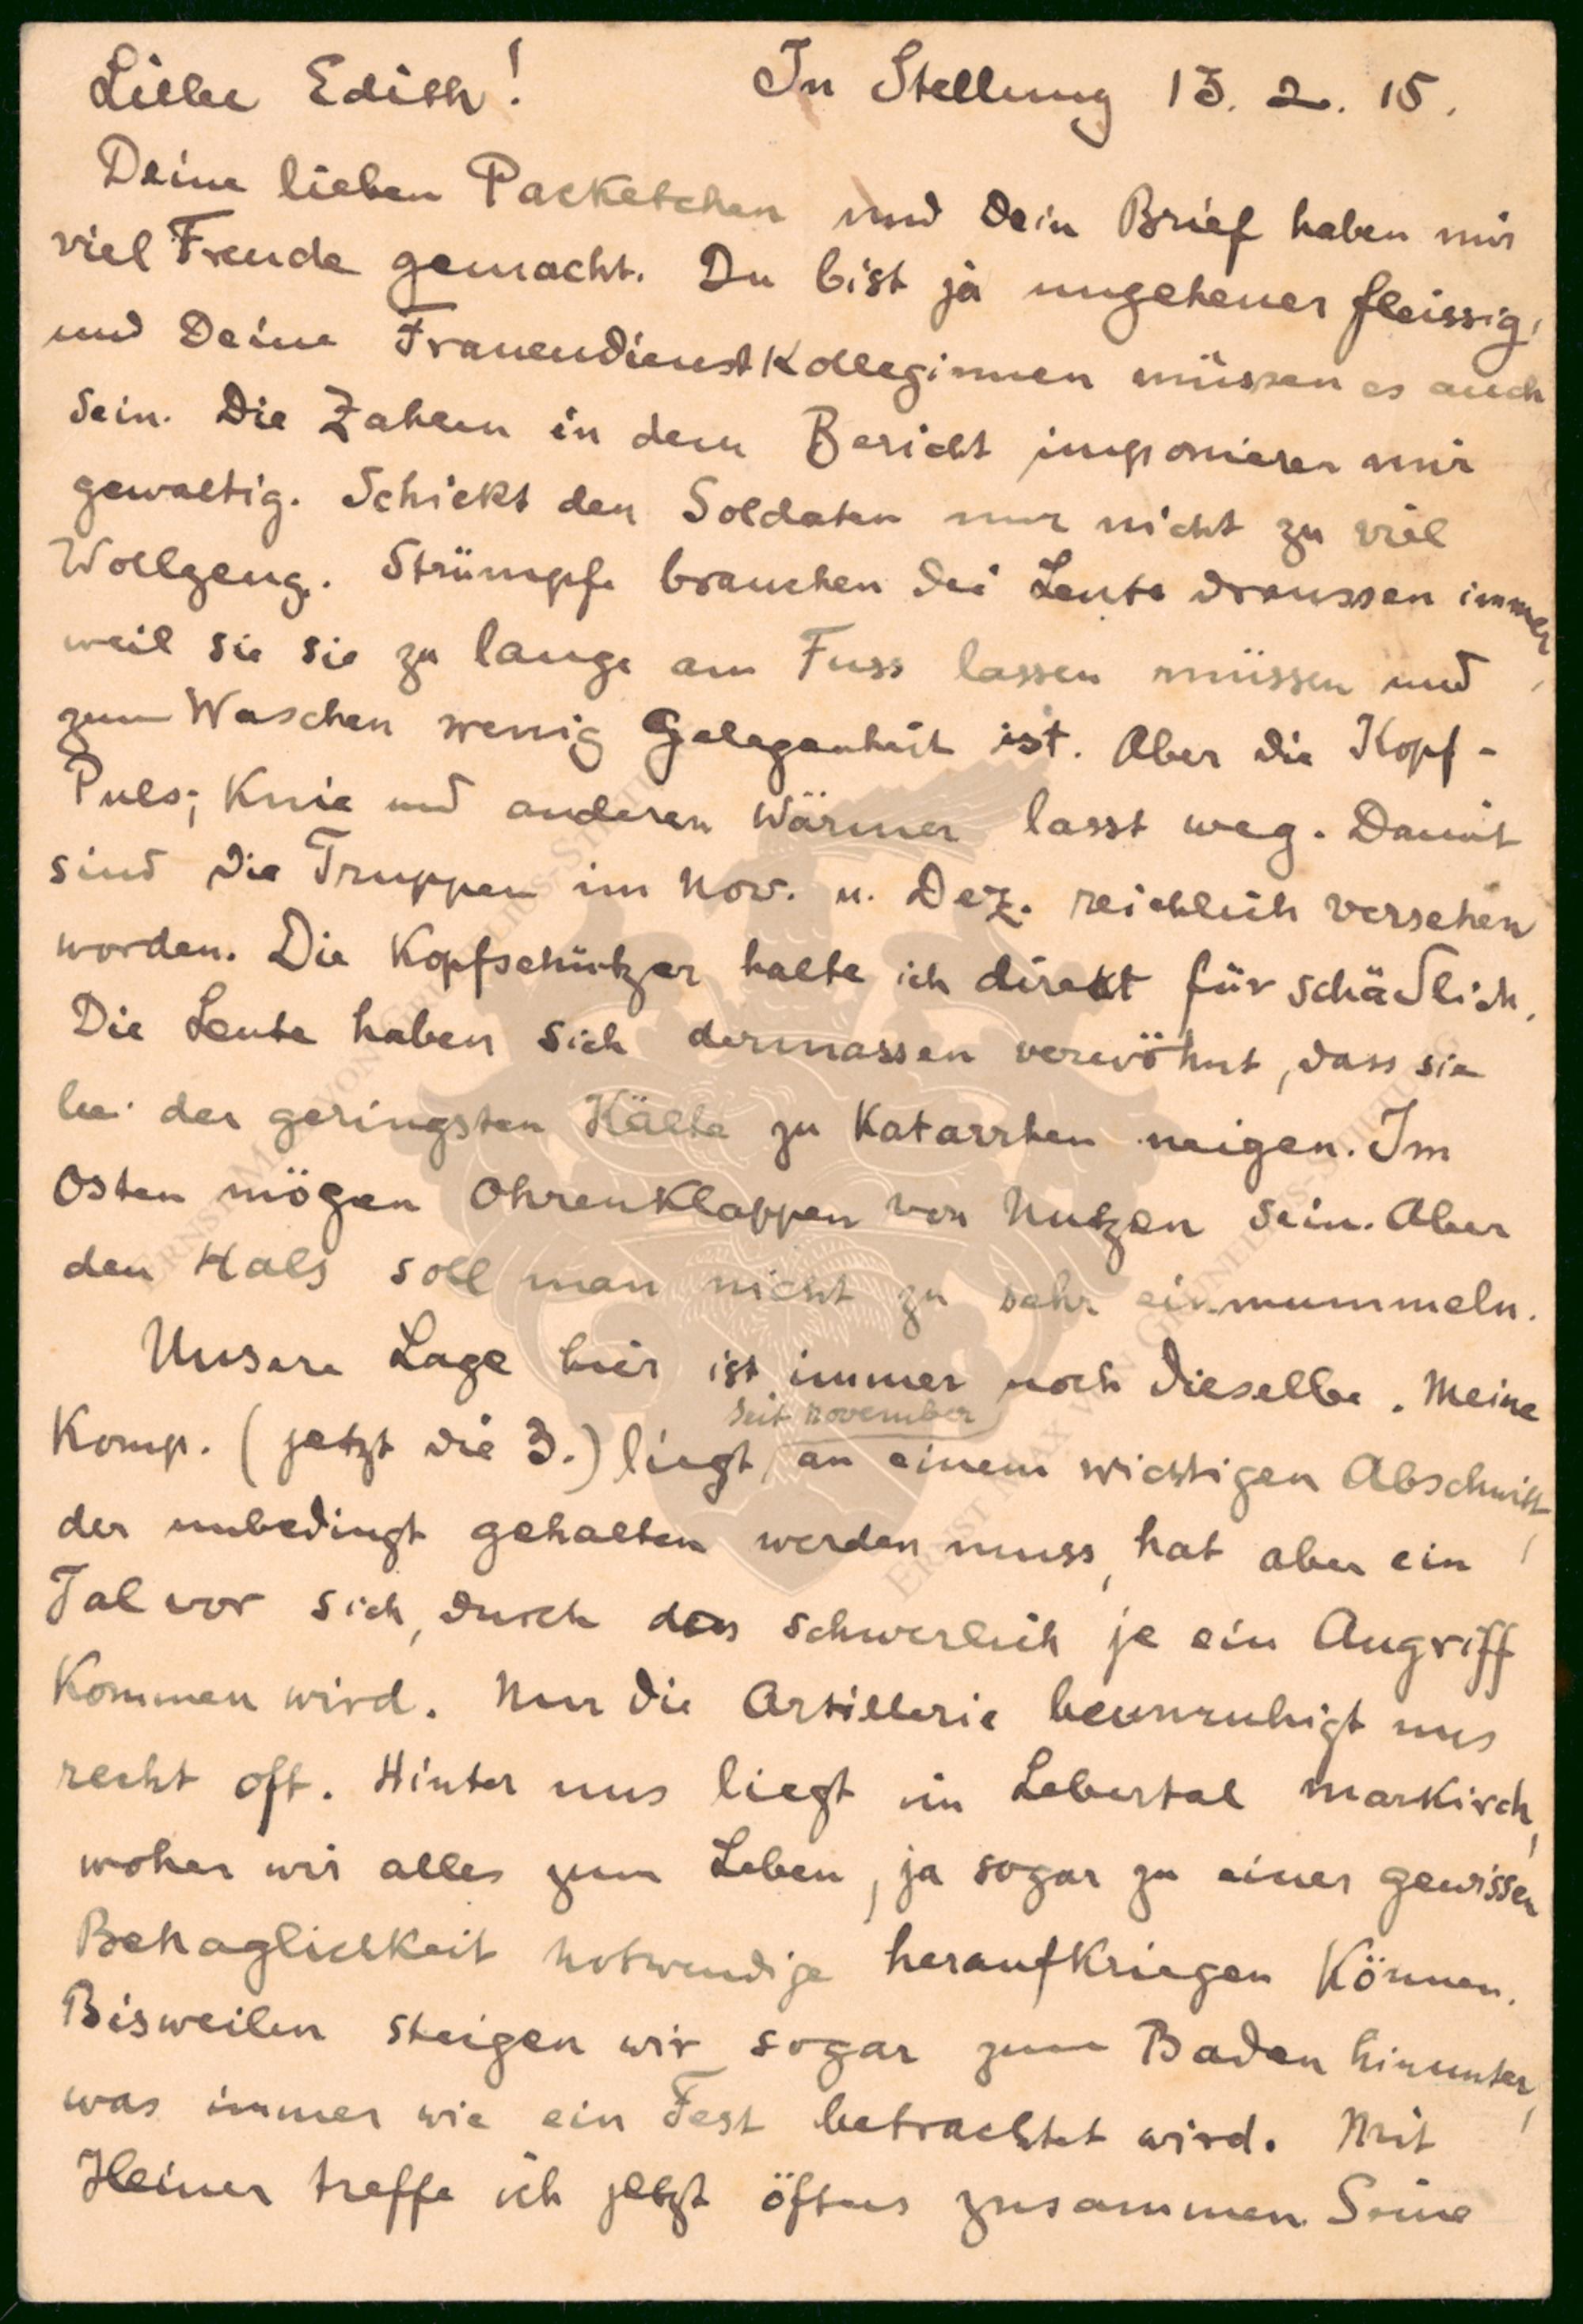 Liebe Edith! In Stellung 13. 2. 15.
Deine lieben Packetchen und Dein Brief haben mir
viel Freude gemacht. Du bist ja ungeheuer fleissig,
und Deine Frauendienstkolleginnen müssen es auch
sein. Die Zahlen in dem Bericht imponieren mir
gewaltig. Schickt den Soldaten nur nicht zu viel
Wollzeug. Strümpfe brauchen die Leute draussen immer,
weil sie sie zu lange am Fuss lassen müssen und
zum Waschen wenig Gelegenheit ist. Aber die Kopf-
Puls-, Knie und anderen Wärmer lasst weg. Damit
sind die Truppen im Nov. u. Dez. reichlich versehen
worden. Die Kopfschützer halte ich direkt für schädlich.
Die Leute haben sich dermassen verwöhnt, dass sie
bei der geringsten Kälte zu Katarrhen neigen. Im
Osten mögen Ohrenklappen von Nutzen sein. Aber
den Hals soll man nicht zu sehr einmummeln.
Unsere Lage hier ist immer noch dieselbe. Meine
seit November
Komp. (jetzt die 3.) liegt an einem wichtigen Abschnitt,
der unbedingt gehalten werden muss, hat aber ein
Tal vor sich, durch das schwerlich je ein Angriff
kommen wird. Nur die Artillerie beunruhigt uns
recht oft. Hinter uns liegt im Lebertal Markirch,
woher wir alles zum Leben, ja sogar zu einer gewissen
Behaglichkeit notwendige heraufkriegen können.
Bisweilen steigen wir sogar zum Baden hinunter,
was immer wie ein Fest betrachtet wird. Mit
Heiner treffe ich jetzt öfters zusammen. Seine
ERNST MAX VON GRUNELIUS-STIFTUNG
ERNST MAX VON GRUNELIUS-STIFTUNG